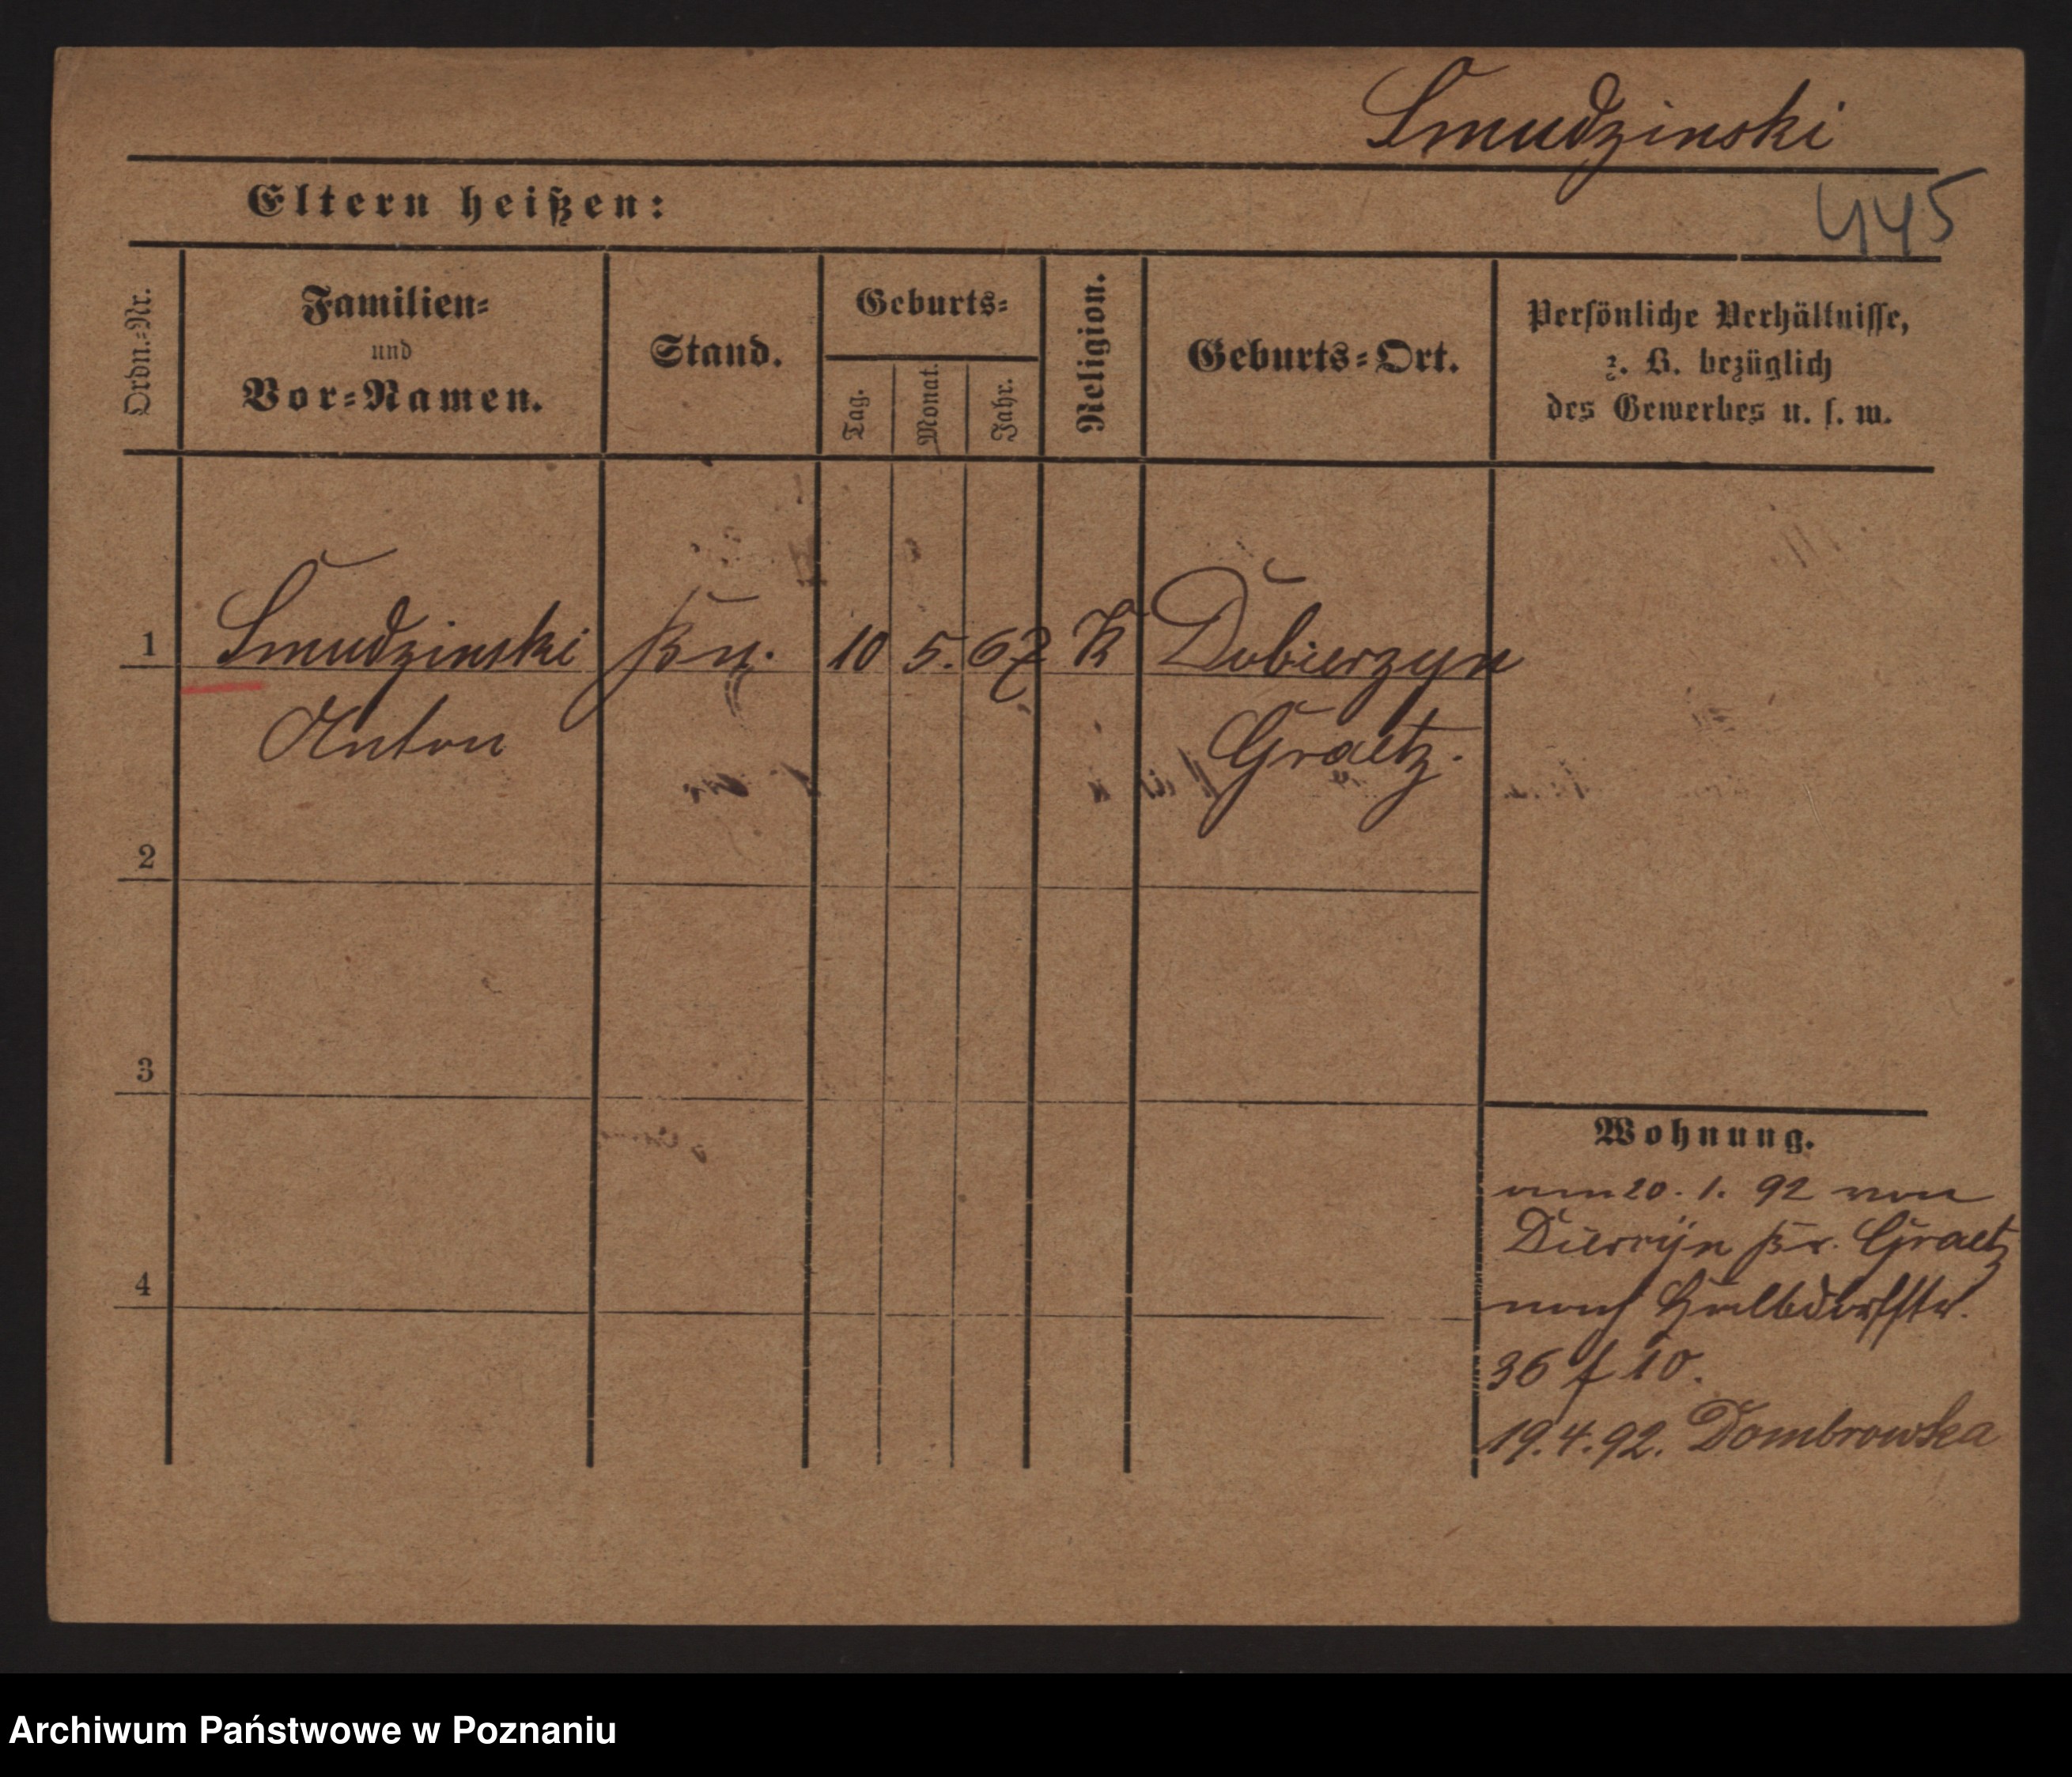 Smudzinski
445
Eltern heißen:
Ordn.-Nr.
Familien-
und
Vor-Namen.
Stand.
Geburts-
Tag.
Monat.
Jahr.
Religion.
Geburts-Ort.
Persönliche Verhältnisse,
z. B. bezüglich
des Gewerbes u. s. w.
1 Smudzinski 10 5. 67 K Dobierzyn
Anton Graetz.
2
3
4
Wohnung.
20. 1. 92 von
Kr. Graetz
nach Halbdorfstr.
36 f 10.
19. 4. 92. Dombrowska
Archiwum Państwowe w Poznaniu